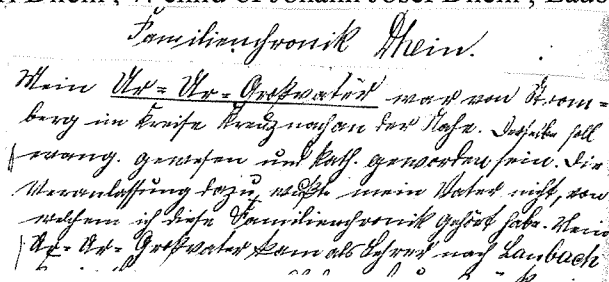 Familienchronik Dhein.
Mein Ur-Ur-Großvater war von Strom=
berg im Kreise Kreuznach an der Nahe. Derselbe soll
evang. gewesen und kath. geworden sein. Die
Veranlassung dazu wußte mein Vater nicht, von
welchem ich diese Familienchronik gehört habe. Mein
Ur-Ur-Großvater kam als Lehrer nach Laubach